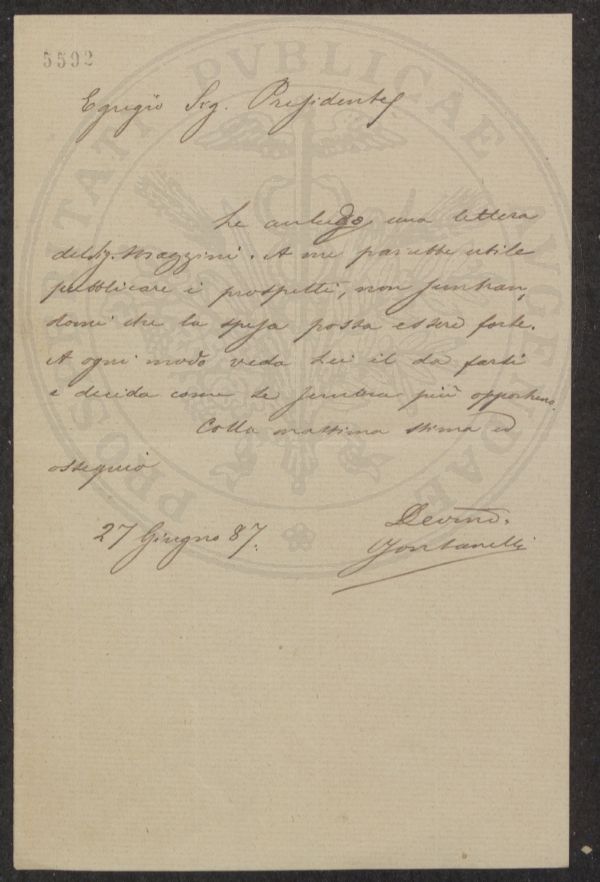 5592
PROSPERITATI PVBLICAE AVGENDAE
Egregio Sig. Presidente
Le accludo una lettera
del Sig. Mazzini. A me parrebbe utile
pubblicare i prospetti, non sembran,
domi che la spesa possa essere forte.
A ogni modo veda Lei il da farsi
e decida come le sembra più opportuno.
Colla massima stima ed
ossequio
27 Giugno 87.
Devmo.
Fontanelli